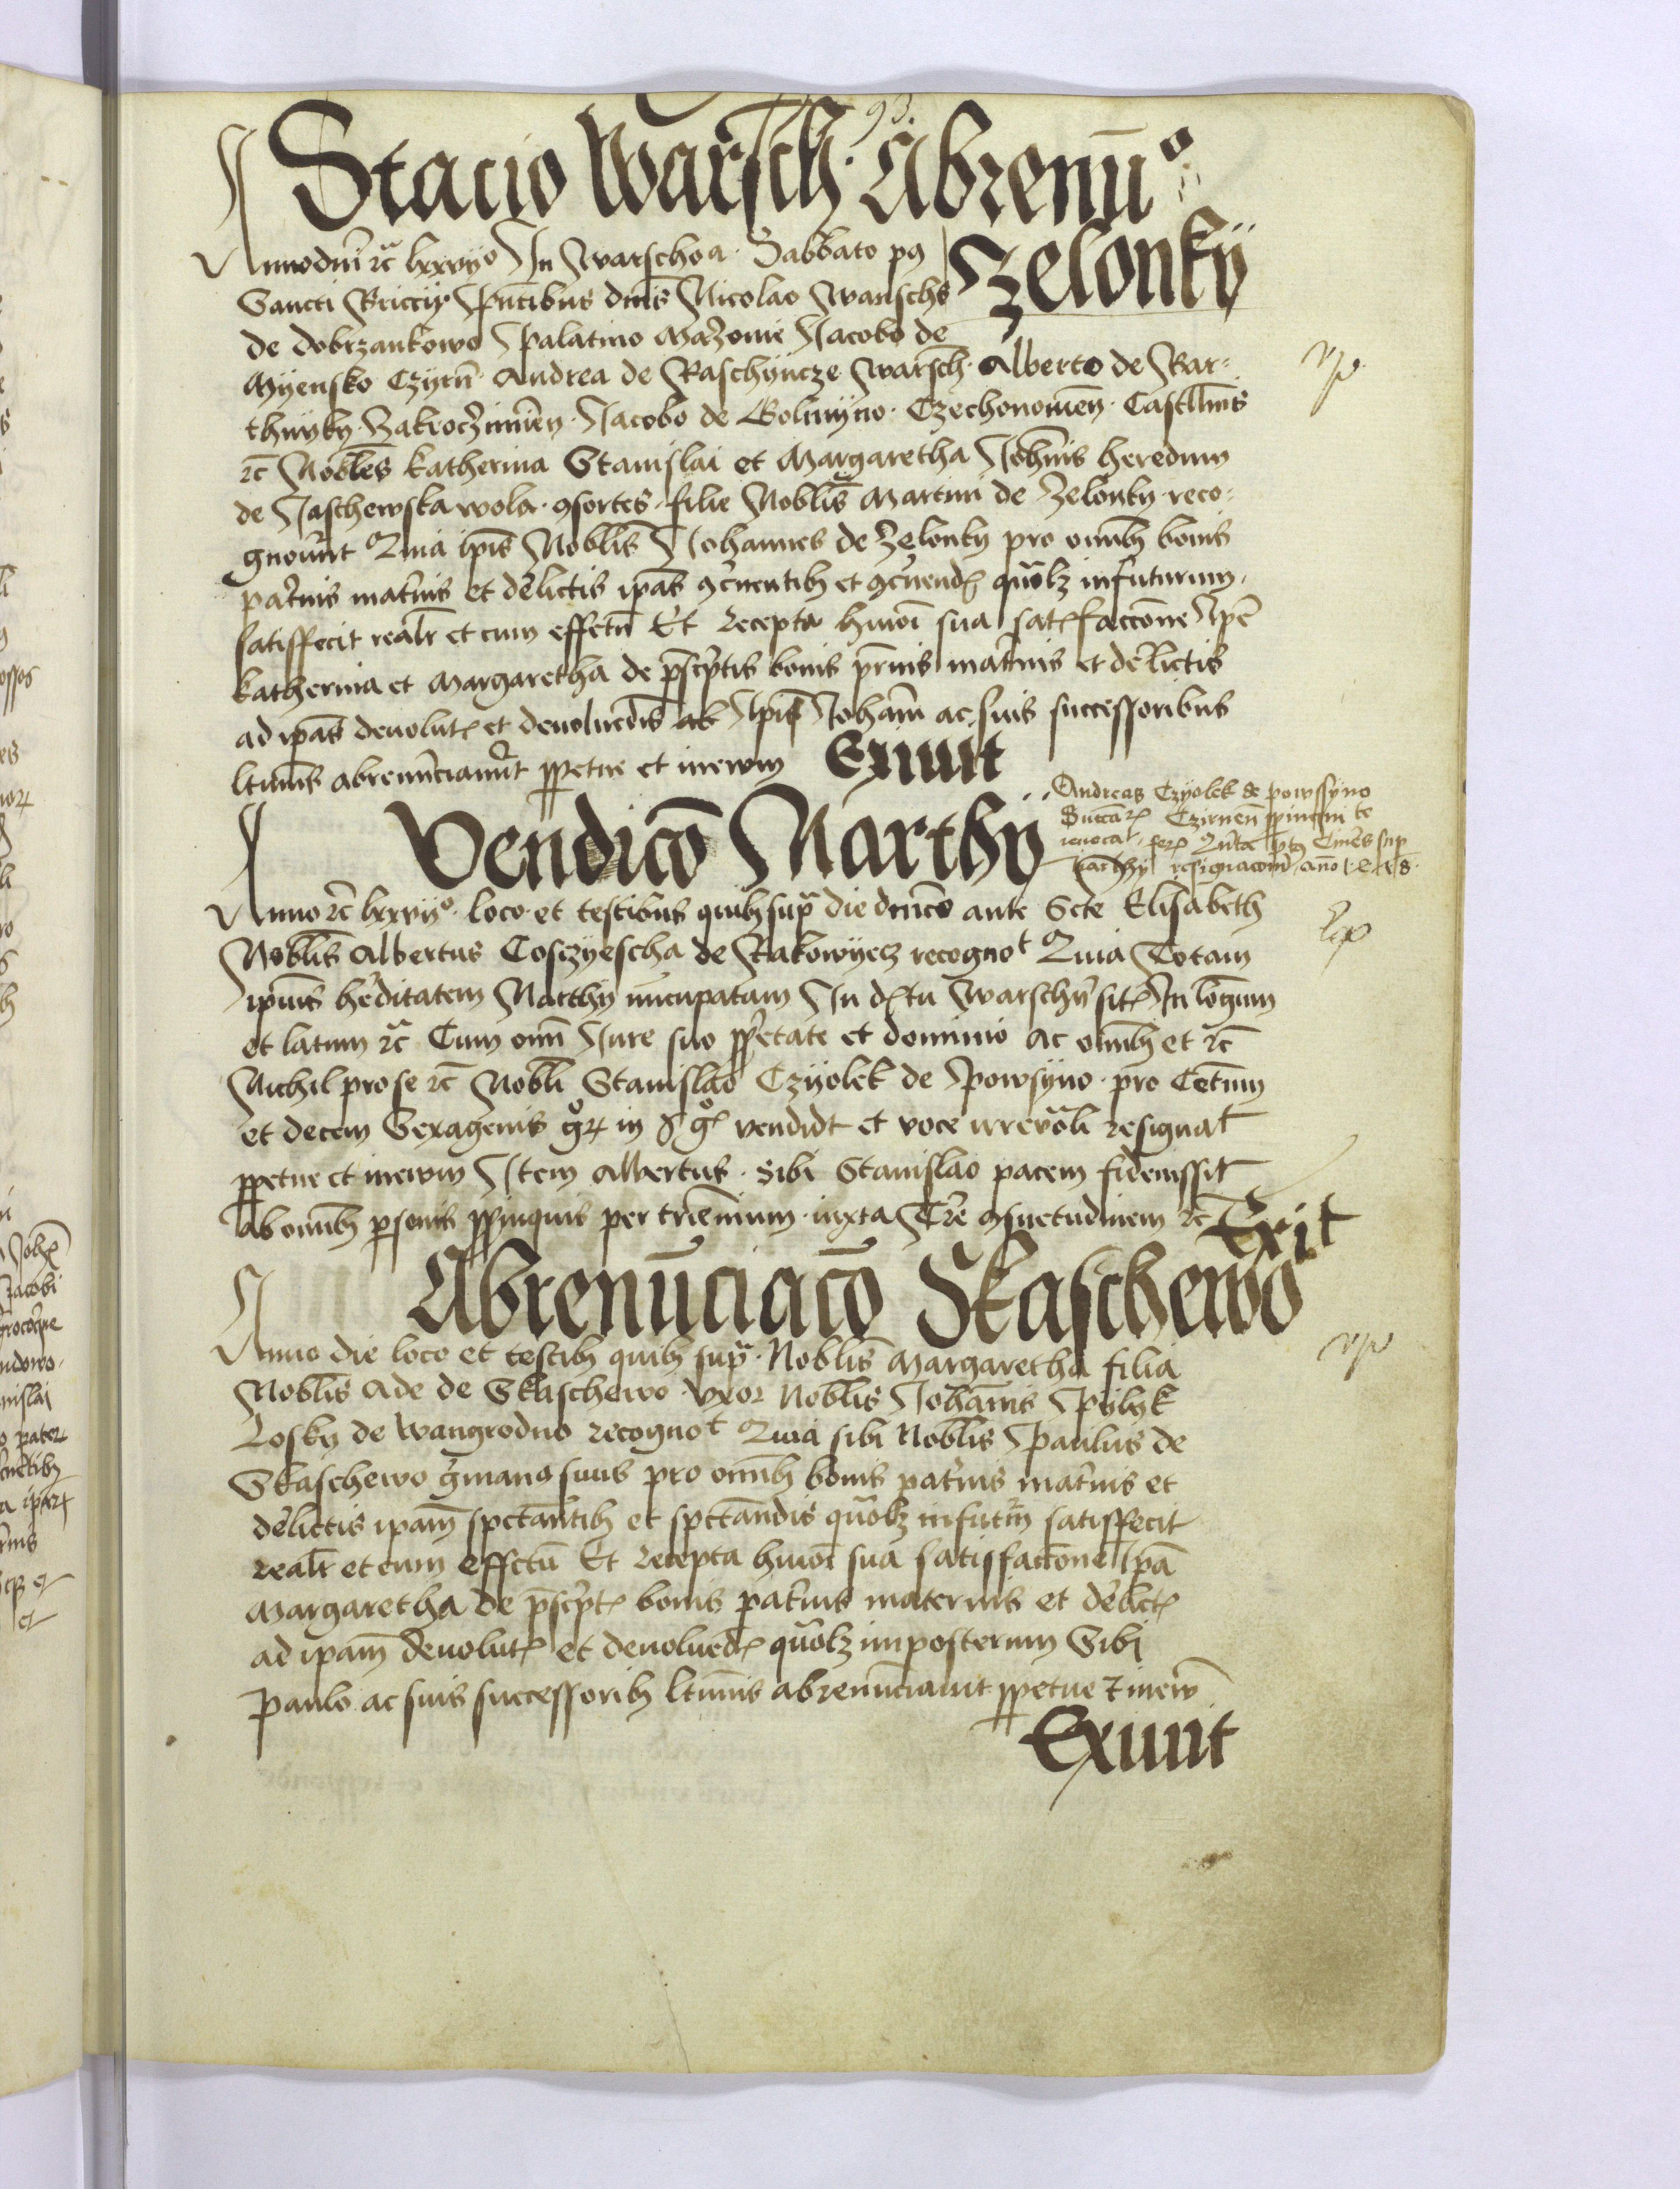 93.
Stacio Warsch. Abrenū°
Anno dni rc lxxvij° In Warschoa. Sabbato p9
Zelonky
Sancti Briccij. Pntibus dnis Nicolao Wansch
de Dobrzankowo Palatino Mazouie Jacobo de
Myensko Czyrn. Andrea de Raschyncze Warsch. Alberto de Bar-
thnyky. Zakroczimien. Jacobo de Golmyno. Czechonomien. Castllanis
rc Nobles Katherina Stanislai et Margaretha Johnis heredum
de Jaschewska wola. 9sortes. filie Noblis Martini de Zelonky. reco-
gnouert Quia ipis Noblis Johannes de Zelonky pro omnibz bonis
patnis matnis et delictis ipas 9cnentibz et 9cnend quolz in futurum,
satisffecit realr et cum effectu Et Recepta hmoi sua satisfaccone Ipe
Katherina et Margaretha de pscptis bonis pnis matnis et delictis
ad ipas deuolut et deuoluedis ab Ipis Joham ac suis successoribus
ltimis abrenuciauert ppetue et ineum Exiuit
Vendico Marthy
Andreas Czyolek de powssyno
Succam Czirnen
Marthy resignacom
Anno rc lxxvij°. loco et testibus quibz sup die dnico ante Scte Elisabeth
Noblis Albertus Cosczyescha de Rakowyecz recognot Quia Totam
ipius hereditatem Marthy nucupatam In dtu Warschn sit In logum
et latum rc Cum omi Jure suo ppetate et dominio ac omibz et rc
Nichil pro se rc Nobli Stanislao Czyolek de Powsyno. pro Cetum
et decem Sexagenis gr in g vendidt et voce irreuoli resignat
ppetue et ineum Item Albertus. sibi Stanislao pacem fideiussit
ab omibz psonis ppinquis per trienium. iuxta Tre 9suetudinem rc Exit
Abrenunciaco Skaschewo
Anno die loco et testibz quibz sup. Noblis Margaretha filia
Noblis Ade de Skaschewo. Vxor Noblis Johanis Pylyk
Losky de Wangrodno recognot Quia sibi Noblis Paulus de
Skaschewo gman9 suus pro omibz bonis patnis matnis et
delictis ipam spctantibz et spctandis quolz in futm satisffecit
realr et cum effctu Et Recepta hmoi sua satisfaccone Ipa
Margaretha de pscpt bonis patnis maternis et delict
ad ipam deuolut et deuolued quolz imposterum Sibi
Paulo ac suis successoribz ltimis abrenunciauit ppetue et ineu
Exiuit